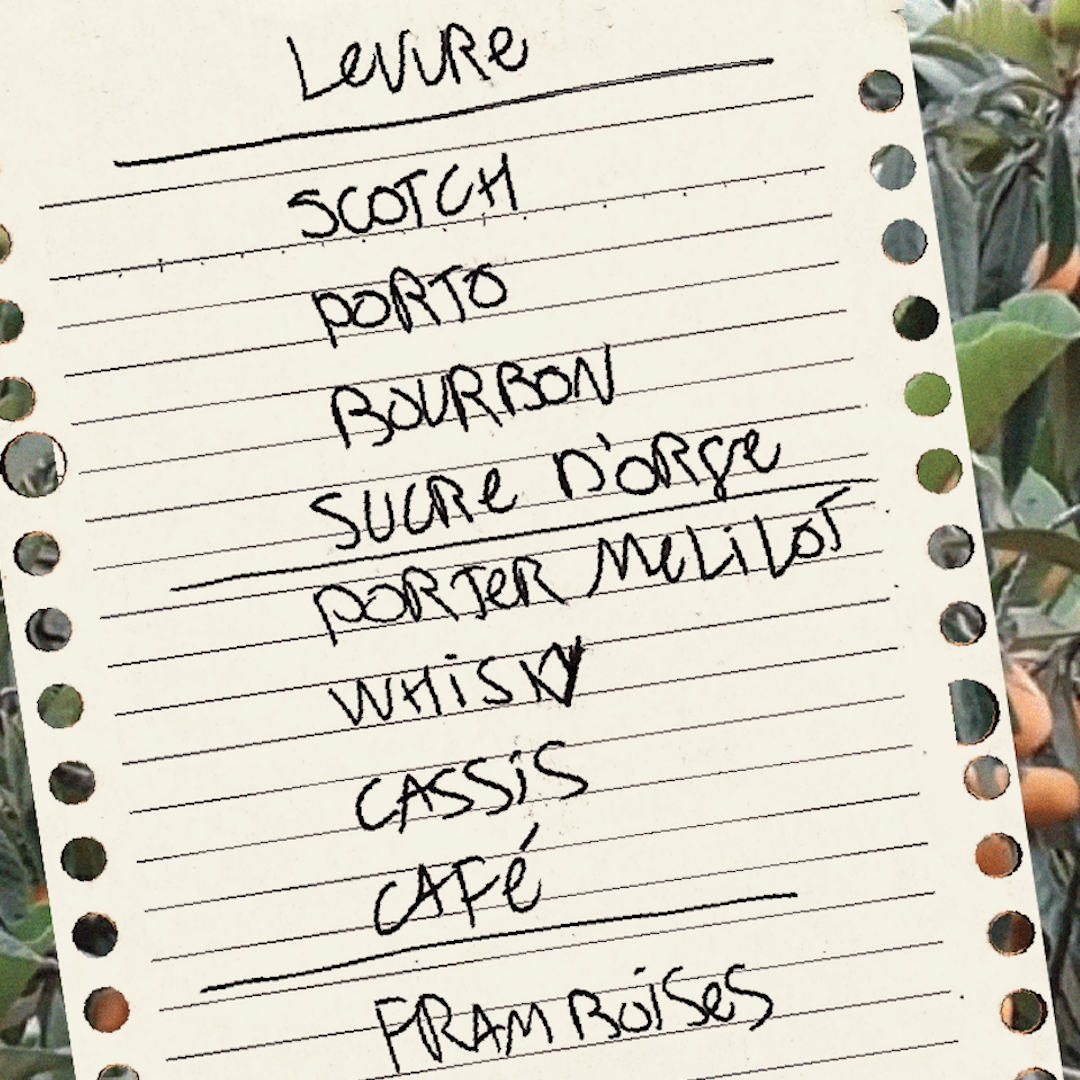 Levure
SCOTCH
PORTO
BOURBON
SUCRe D'ORge
PORTeR MeLiLOT
WHiSKY
CASSiS
CAFé
FRAMBOiSeS